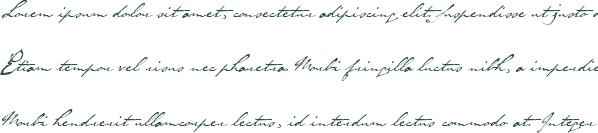 Lorem ipsum dolor sit amet, consectetur adipiscing elit. Suspendisse ut justo
Etiam tempor vel risus nec pharetra. Morbi fringilla luctus nibh, a imperdie
Morbi hendrerit ullamcorper lectus, id interdum lectus commodo at. Integer